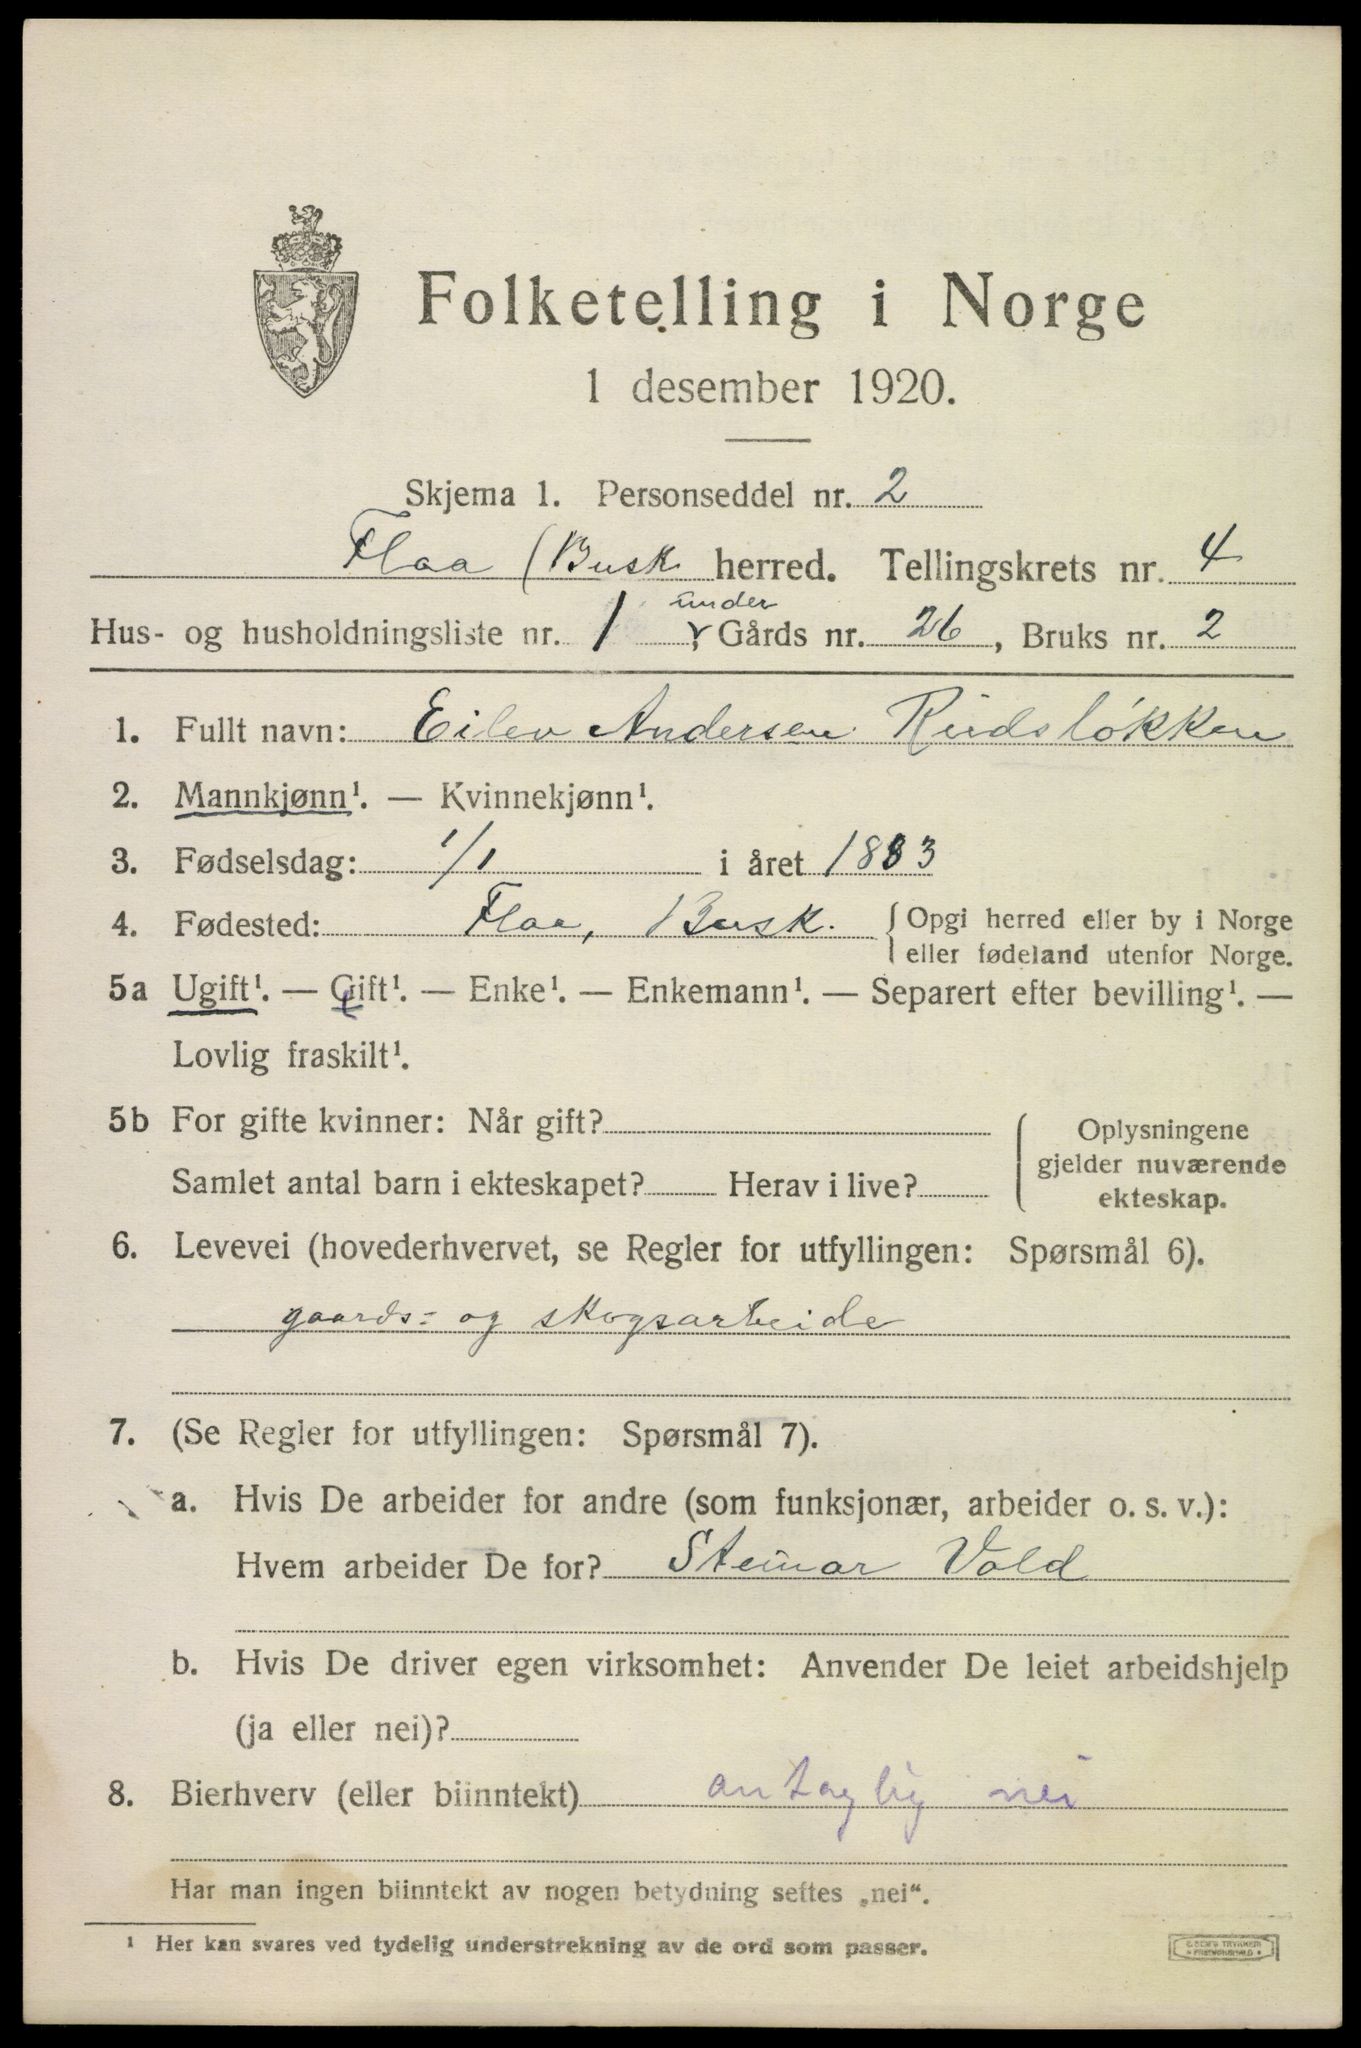 Folketelling i Norge
1 desember 1920.
Skjema 1. Personseddel nr. 2
Flaa (Busk herred. Tellingskrets nr. 4
under
Hus- og husholdningsliste nr. 1, Gårds nr. 26, Bruks nr. 2
1. Fullt navn: Eilev Andersen Rudsløkken
2. Mannkjønn¹. — Kvinnekjønn¹.
3. Fødselsdag: 1/1 i året 1883
4. Fødested: Flaa, Busk. { Opgi herred eller by i Norge
eller fødeland utenfor Norge.
5a Ugift¹. — Gift¹. — Enke¹. — Enkemann¹. — Separert efter bevilling¹. —
Lovlig fraskilt¹.
5b For gifte kvinner: Når gift?
Samlet antal barn i ekteskapet? Herav i live?
Oplysningene
gjelder nuværende
ekteskap.
6. Levevei (hovederhvervet, se Regler for utfyllingen: Spørsmål 6).
gaards- og skogsarbeide
7. (Se Regler for utfyllingen: Spørsmål 7).
a. Hvis De arbeider for andre (som funksjonær, arbeider o. s. v.):
Hvem arbeider De for? Steinar Vold
b. Hvis De driver egen virksomhet: Anvender De leiet arbeidshjelp
(ja eller nei)?
8. Bierhverv (eller biinntekt) antaglig nei
Har man ingen biinntekt av nogen betydning settes „nei“.
¹ Her kan svares ved tydelig understrekning av de ord som passer.